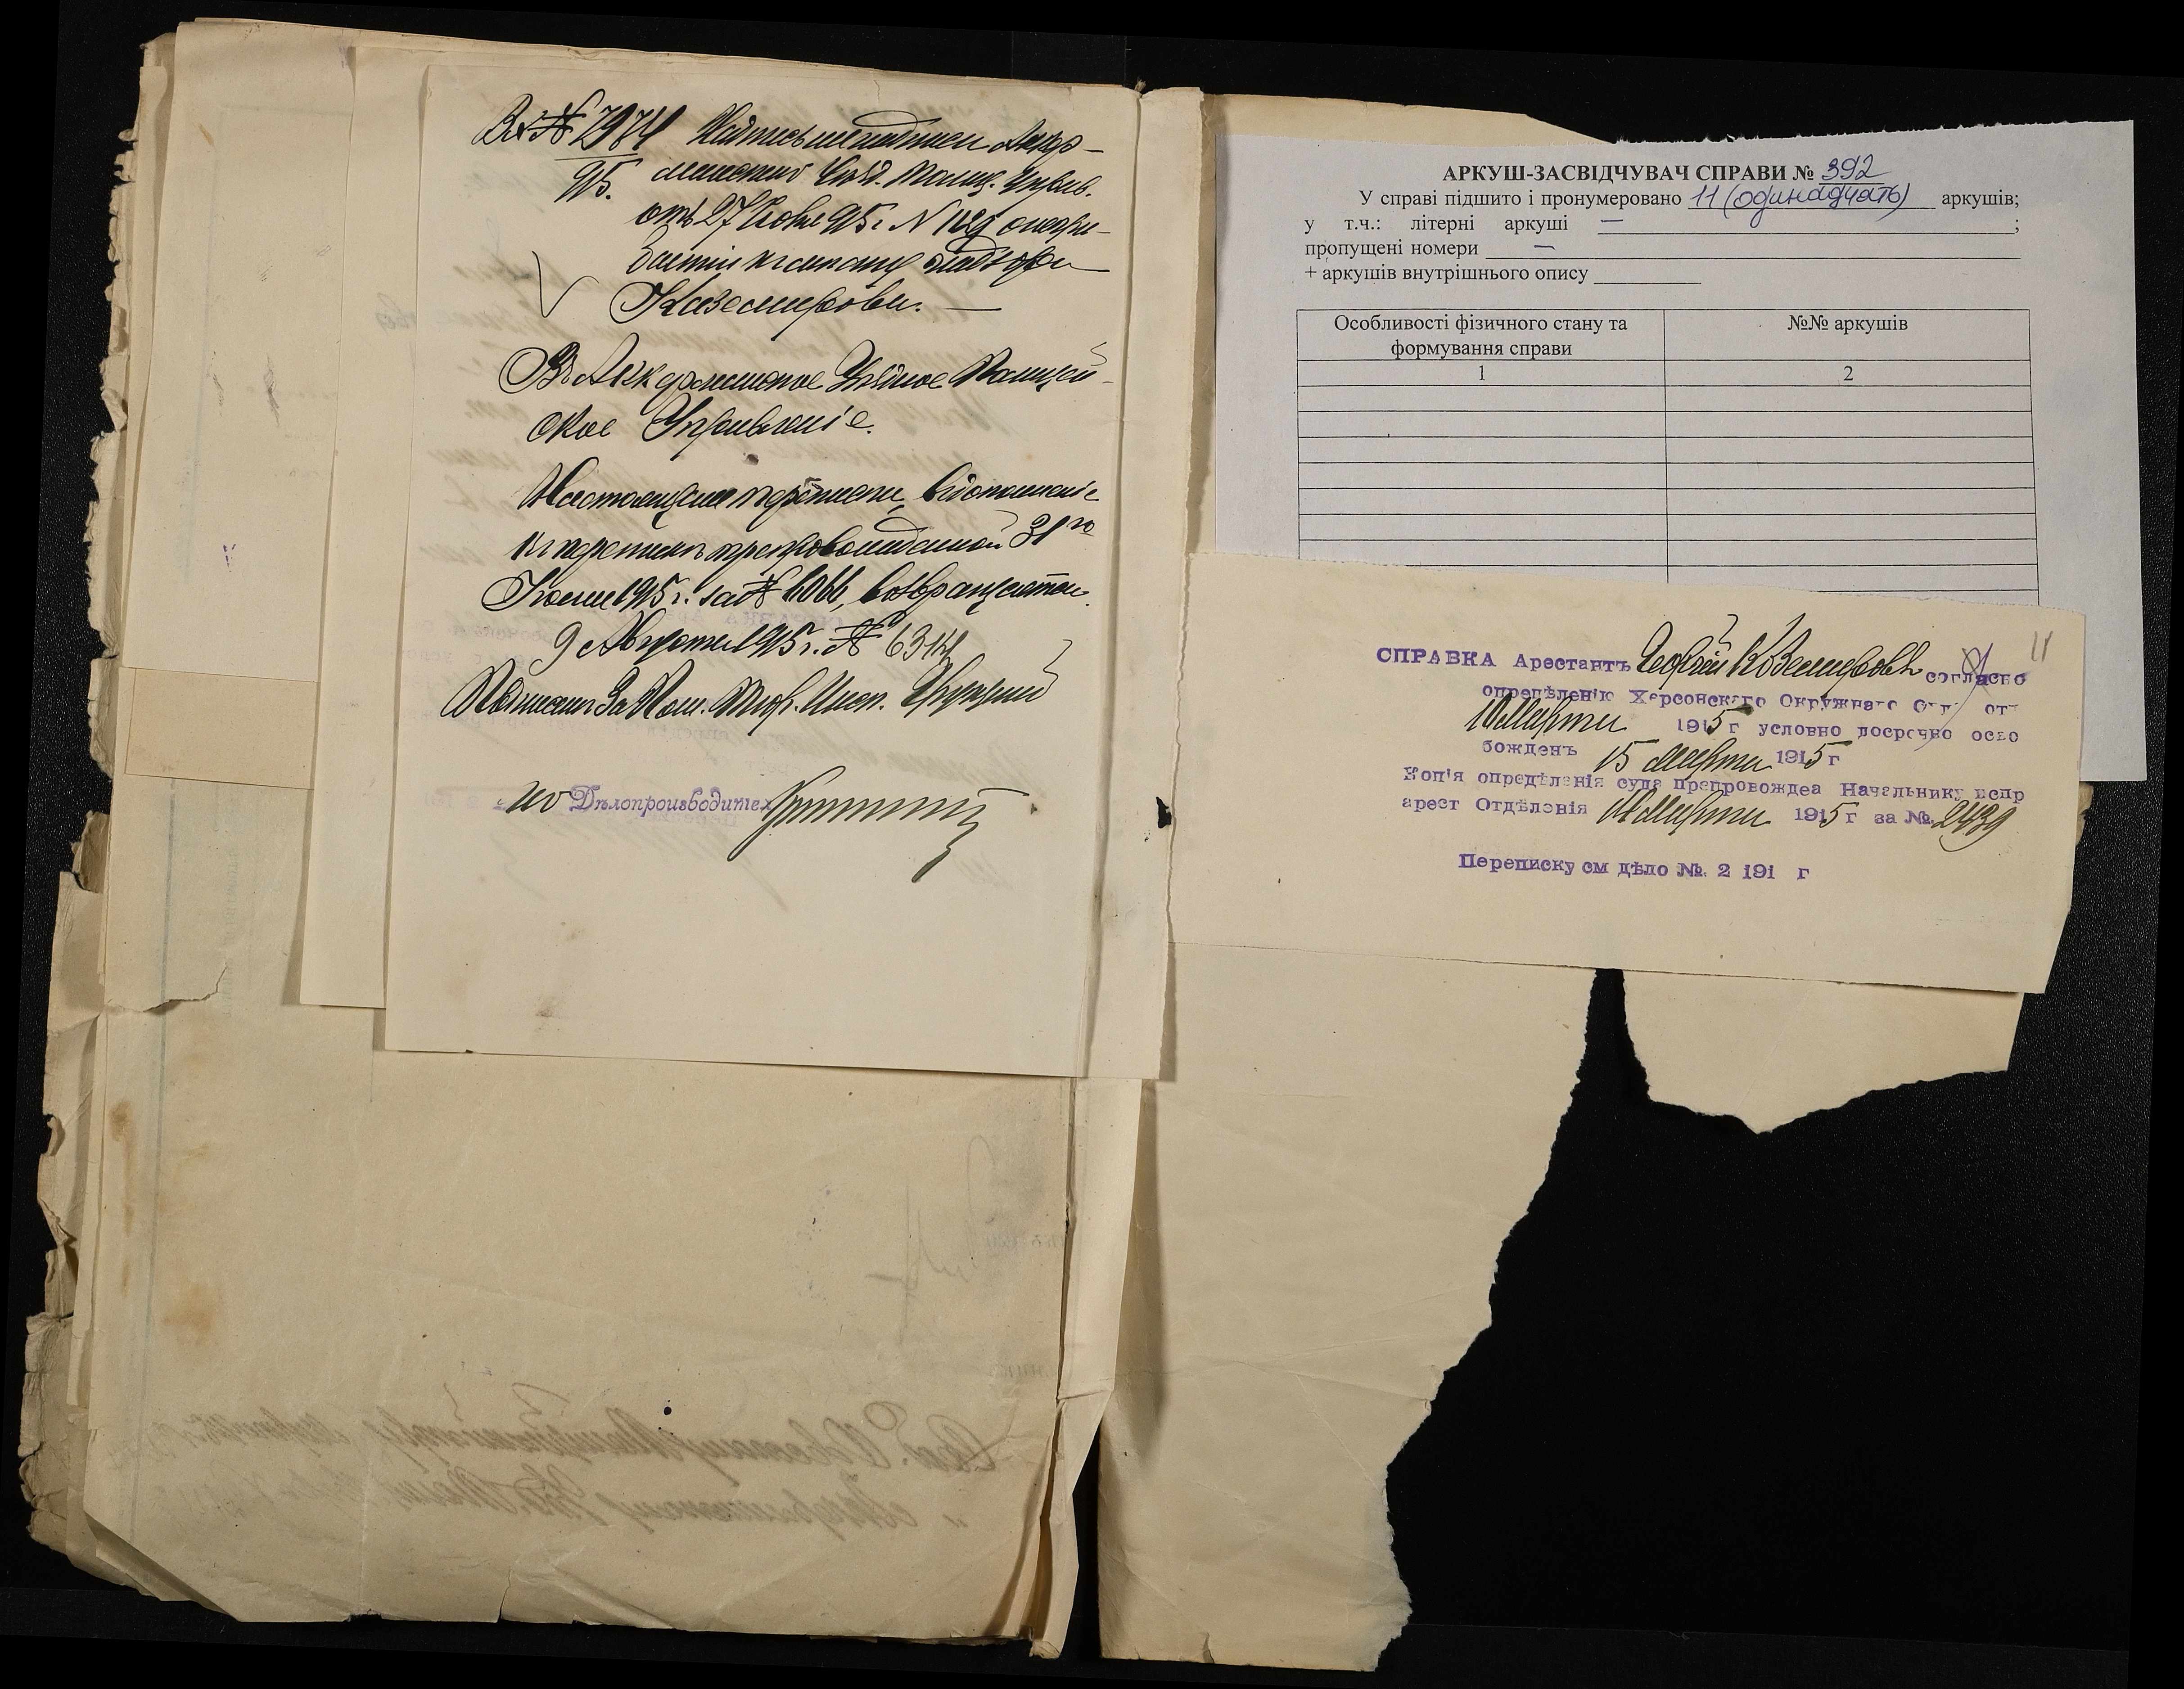 Вх № 7974 Надпись на надписи Аккер-
915. манскаго Уѣзд. Полиц. Управ.
отъ 27 Іюля 915 г. N 1129
надзора
Каземирова. —
Въ Аккерманское Уѣздное Полицей-
ское Управленіе.
Настоящая переписка, въ дополненіе
къ перепискѣ препровожденной 31го
Іюля 1915 г. за № 6066, возвращается.
9 Августа 1915 г. № 6344
Подписалъ За Пом. Тюр. Инсп.
ио Дѣлопроизводител
АРКУШ-ЗАСВІДЧУВАЧ СПРАВИ № 392
У справі підшито і пронумеровано 11 (одинадцать) аркушів;
у т.ч.: літерні аркуші — ;
пропущені номери —
+ аркушів внутрішнього опису
Особливості фізичного стану та формування справи №№ аркушів
1 2
11
СПРАВКА Арестантъ Георгій Каземировъ согласно
опредѣленію Херсонскаго Окружнаго Суда отъ
10 Марта 1915 г условно досрочно осво
божденъ 15 Марта 1915 г
Копія опредѣленія суда препровождеа Начальнику испр
арест Отдѣленія 14 Марта 1915 г за №. 2439
Переписку см дѣло №. 2 191 г